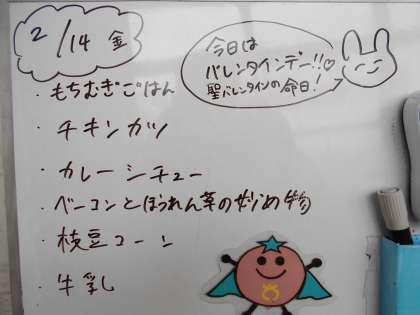 2/14 金
今日は
バレンタインデー!!♡
聖バレンタインの命日!
・もちむぎごはん
・チキンカツ
・カレーシチュー
・ベーコンとほうれん草の炒め物
・枝豆コーン
・牛乳